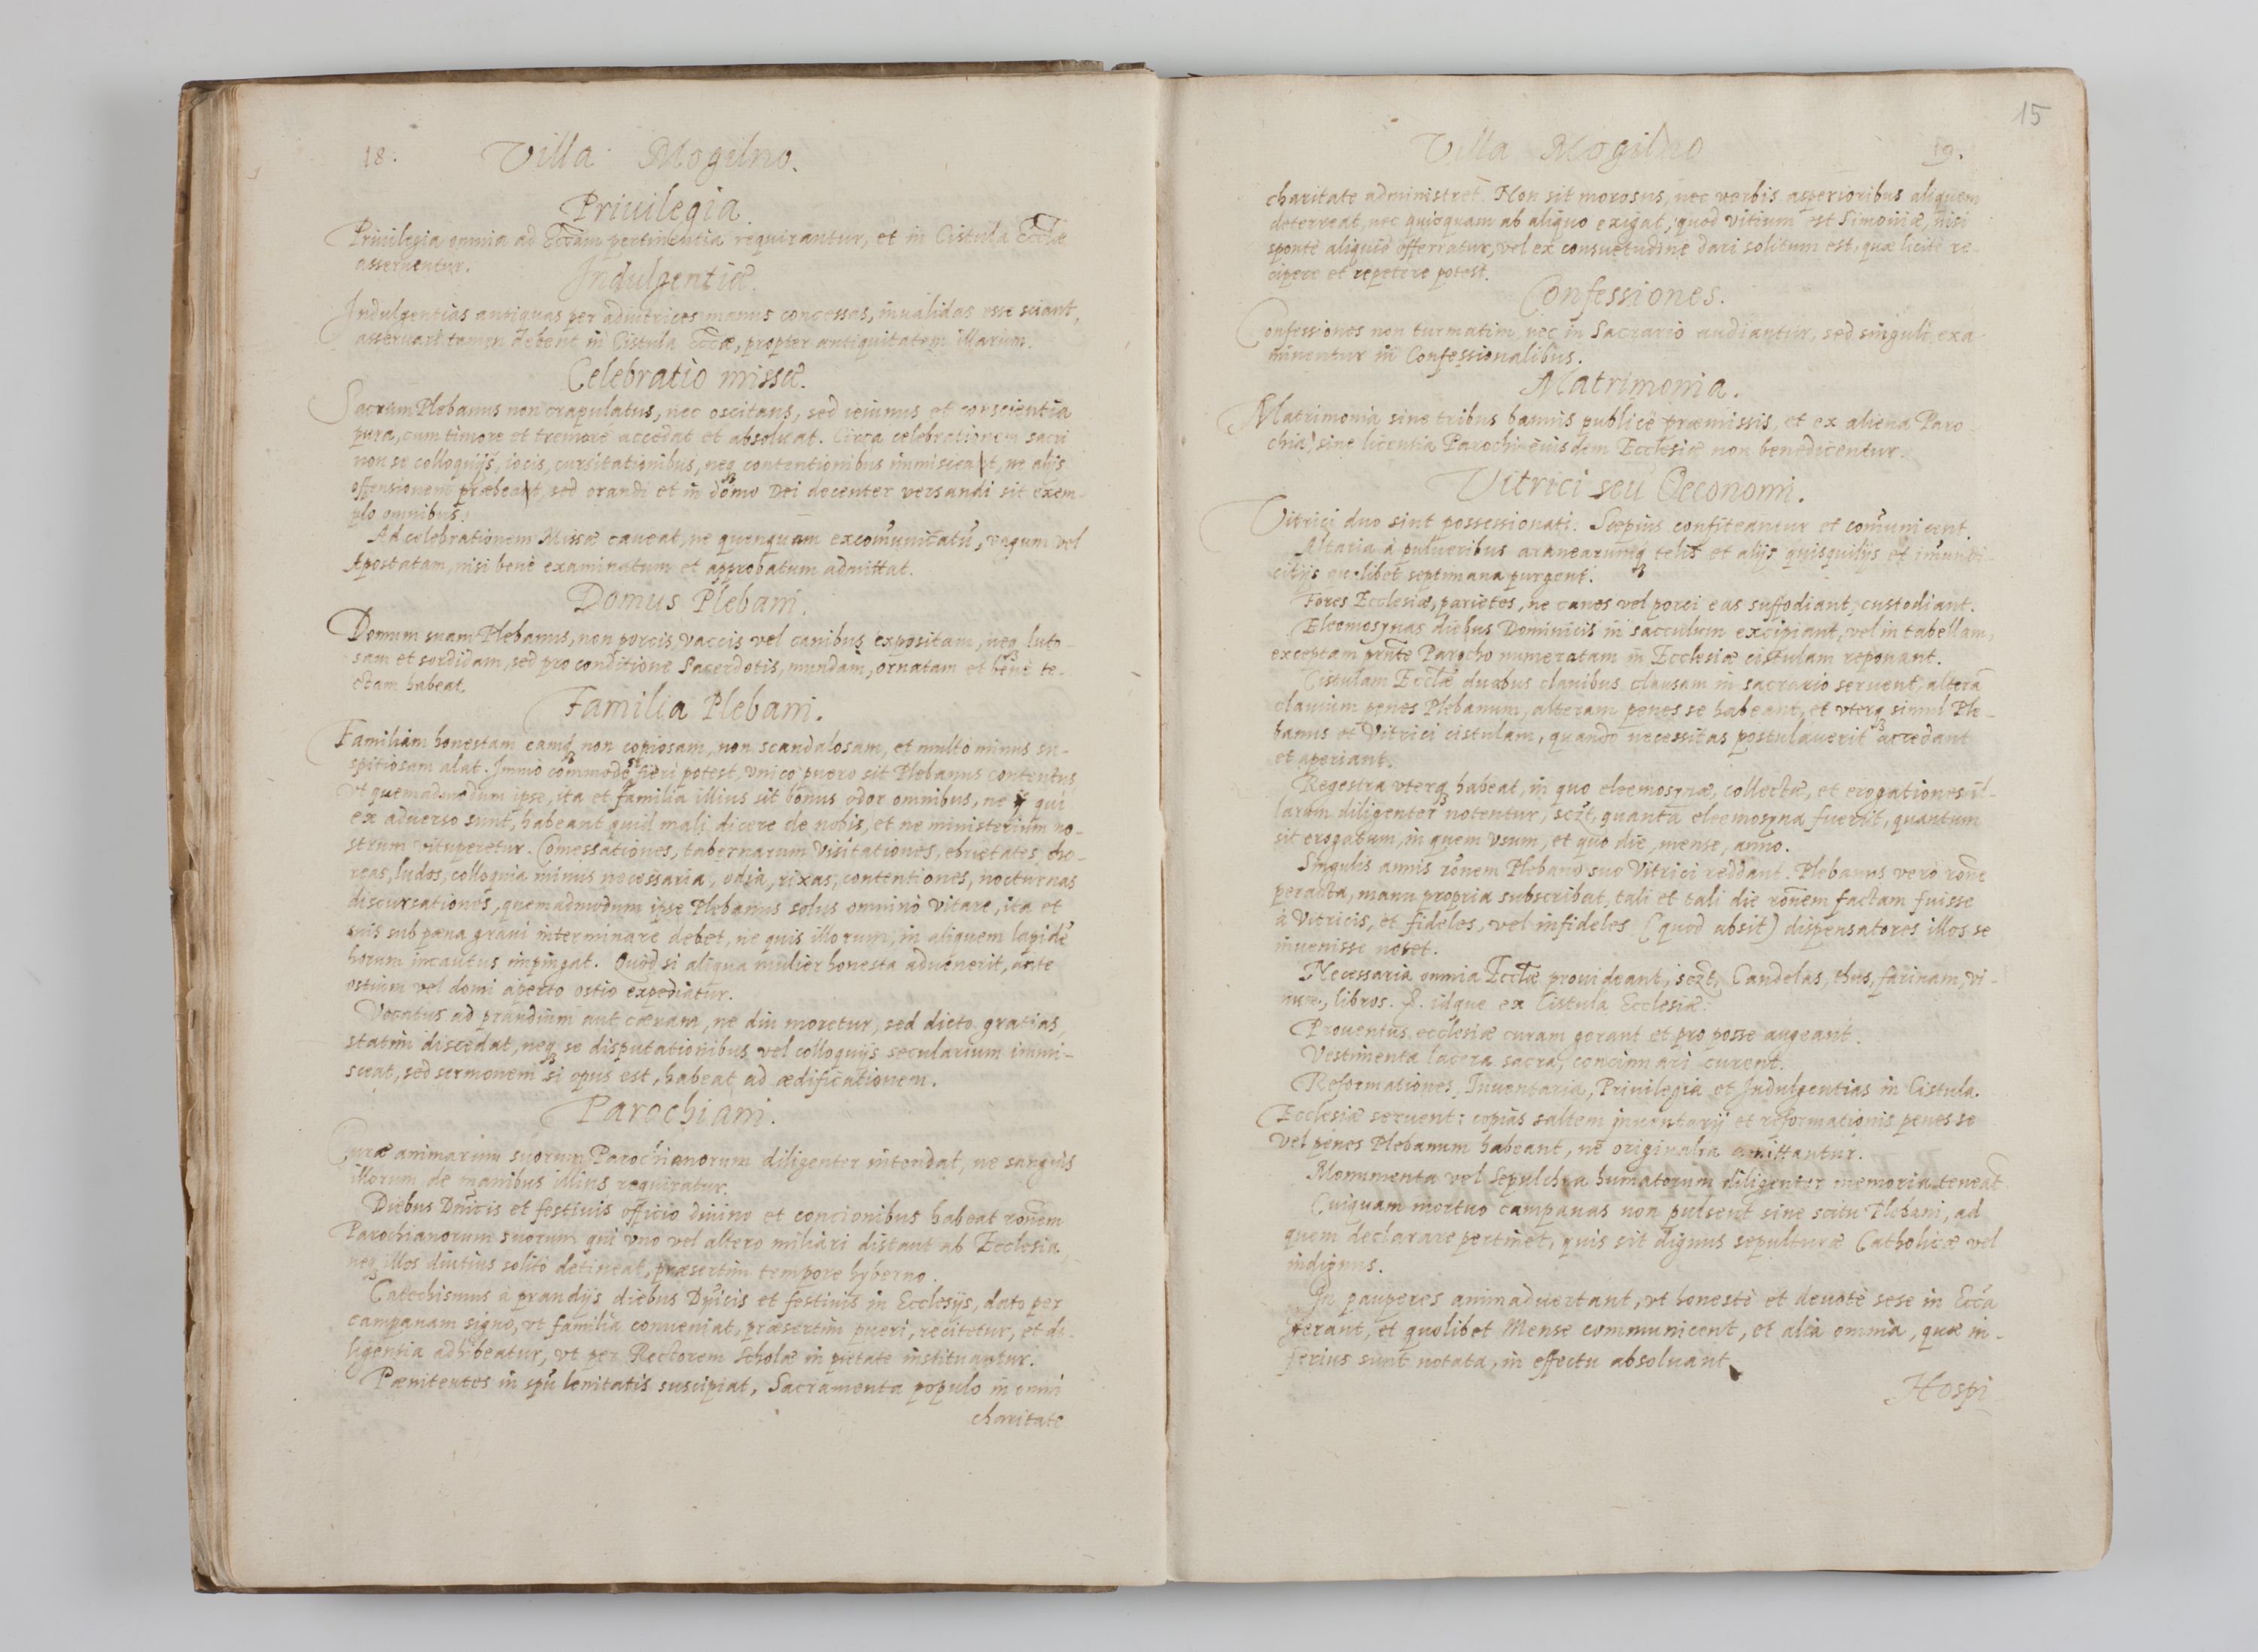 18. Villa Mogilno.
Priuilegia.
Priuilegia omnia ad Eccam pertinentia requirantur, et in Cistula Eccłæ
asseruentur.
Indulgentiæ.
Indulgentias antiquas per adiutrices manus concessas, inualidas esse sciant,
asseruari tamen debent in Cistula Eccæ, propter antiquitatem illarum.
Celebratio missæ.
Sacrum Plebanus non crapulatus, nec oscitans, sed ieiunus et conscientia
pura, cum timore et tremore accedat et absoluat. Circa celebrationem sacri
non se colloquijs, iocis, cursitationibus, neq3 contentionibus immisceat, ne alijs
offensionem præbeat, sed orandi et in domo Dei decenter versandi sit exem-
plo omnibus.
Ad celebrationem Missæ caueat, ne quenquam excom̃unicatũ, vagum vel
Apostatam, nisi benè examinatum et approbatum admittat.
Domus Plebani.
Domum suam Plebanus, non porcis, vaccis vel canibus expositam, neq3 luto-
sam et sordidam, sed pro conditione Sacerdotis, mundam, ornatam et benè te-
ctam habeat.
Familia Plebani.
Familiam honestam eamq3 non copiosam, non scandalosam, et multò minus su-
spitiosam alat. Immò commodè si fieri potest, vnico puero sit Plebanus contentus,
vt quemadmodum ipse, ita et familia illius sit bonus odor omnibus, ne ij qui
ex aduerso sunt, habeant quid mali dicere de nobis, et ne ministerium no-
strum vituperetur. Comessationes, tabernarum visitationes, ebrietates, cho-
reas, ludos, colloquia minus necessaria, odia, rixas, contentiones, nocturnas
discursationes, quemadmodum ipse Plebanus solus omninò vitare, ita et
suis sub pæna graui interminare debet, ne quis illorum, in aliquem lapidẽ
horum incautus impingat. Quòd si aliqua mulier honesta aduenerit, ante
ostium vel domi aperto ostio expediatur.
Vocatus ad prandium aut cænam, ne diu moretur, sed dicto gratias,
statim discedat, neq3 se disputationibus vel colloquijs secularium immi-
sceat, sed sermonem si opus est, habeat ad ædificationem.
Parochiani.
Curæ animarum suorum Parochianorum diligenter intendat, ne sanguis
illorum de manibus illius requiratur.
Diebus Dnicis et festiuis officio diuino et concionibus habeat ronem
Parochianorum suorum qui vno vel altero miliari distant ab Ecclesia,
neq3 illos diutius solito detineat, præsertim tempore hyberno.
Catechismus à prandijs diebus Dnicis et festiuis in Ecclesijs, dato per
campanam signo, vt familia conueniat, præsertim pueri, recitetur, et di-
ligentia adhibeatur, vt per Rectorem Scholæ in pietate instituantur.
Pænitentes in spũ lenitatis suscipiat, Sacramenta populo in omni
charitate
15
Villa Mogilno 19.
charitate administret. Non sit morosus, nec verbis asperioribus aliquem
deterreat, nec quicquam ab aliquo exigat, quod vitium est Simoniæ, nisi
spontè aliquid offerratur, vel ex consuetudine dari solitum est, quæ licitè re-
cipere et repetere potest.
Confessiones.
Confessiones non turmatim, nec in Sacrario audiantur, sed singuli exa-
minentur in Confessionalibus.
Matrimonia.
Matrimonia sine tribus bannis publicè præmissis, et ex aliena Paro-
chia, sine licentia Parochi eiusdem Ecclesiæ non benedicentur.
Vitrici seu Oeconomi.
Vitrici duo sint possessionati. Sæpius confiteantur et com̃unicent.
Altaria à pulueribus aranearumq3 telis et alijs quisquilijs et im̃undi-
citijs qualibet septimana purgent.
Fores Ecclesiæ, parietes, ne canes vel porci eas suffodiant, custodiant.
Eleemosynas diebus Dominicis in sacculum excipiant, vel in tabellam,
exceptam pnte Parocho numeratam in Ecclesiæ cistulam reponant.
Cistulam Eccłæ duabus clauibus clausam in sacrario seruent, alterã
clauium penes Plebanum, alteram penes se habeant, et vterq3 simul Ple-
banus et Vitrici cistulam, quando necessitas postulauerit accedant
et aperiant.
Regestra vterq3 habeat, in quo eleemosynæ, collectæ, et erogationes il-
larum diligenter notentur, sczt, quanta eleemosyna fuerit, quantum
sit erogatum, in quem vsum, et quo die, mense, anno.
Singulis annis ronem Plebano suo Vitrici reddant. Plebanus verò rone
peracta, manu propria subscribat, tali et tali die ronem factam fuisse
à Vitricis, et fideles, vel infideles (quod absit) dispensatores illos se
inuenisse notet.
Necessaria omnia Eccłæ prouideant, sczt, Candelas, thus, farinam, vi-
num, libros. &. idque ex Cistula Ecclesiæ.
Prouentus ecclesiæ curam gerant et pro posse augeant.
Vestimenta lacera sacra, concinnari curent.
Reformationes, Inuentaria, Priuilegia et Indulgentias in Cistula
Ecclesiæ seruent: copias saltem inuentarij et reformationis penes se
vel penes Plebanum habeant, ne originalia amittantur.
Monumenta vel Sepulchra humatorum diligenter memoria teneant
Cuiquam mortuo campanas non pulsent sine scitu Plebani, ad
quem declarare pertinet, quis sit dignus sepulturæ Catholicæ vel
indignus.
In pauperes animaduertant, vt honestè et deuotè sese in Ecca
gerant, et quolibet Mense communicent, et alia omnia, quæ in-
ferius sunt notata, in effectu absoluant
Hospi